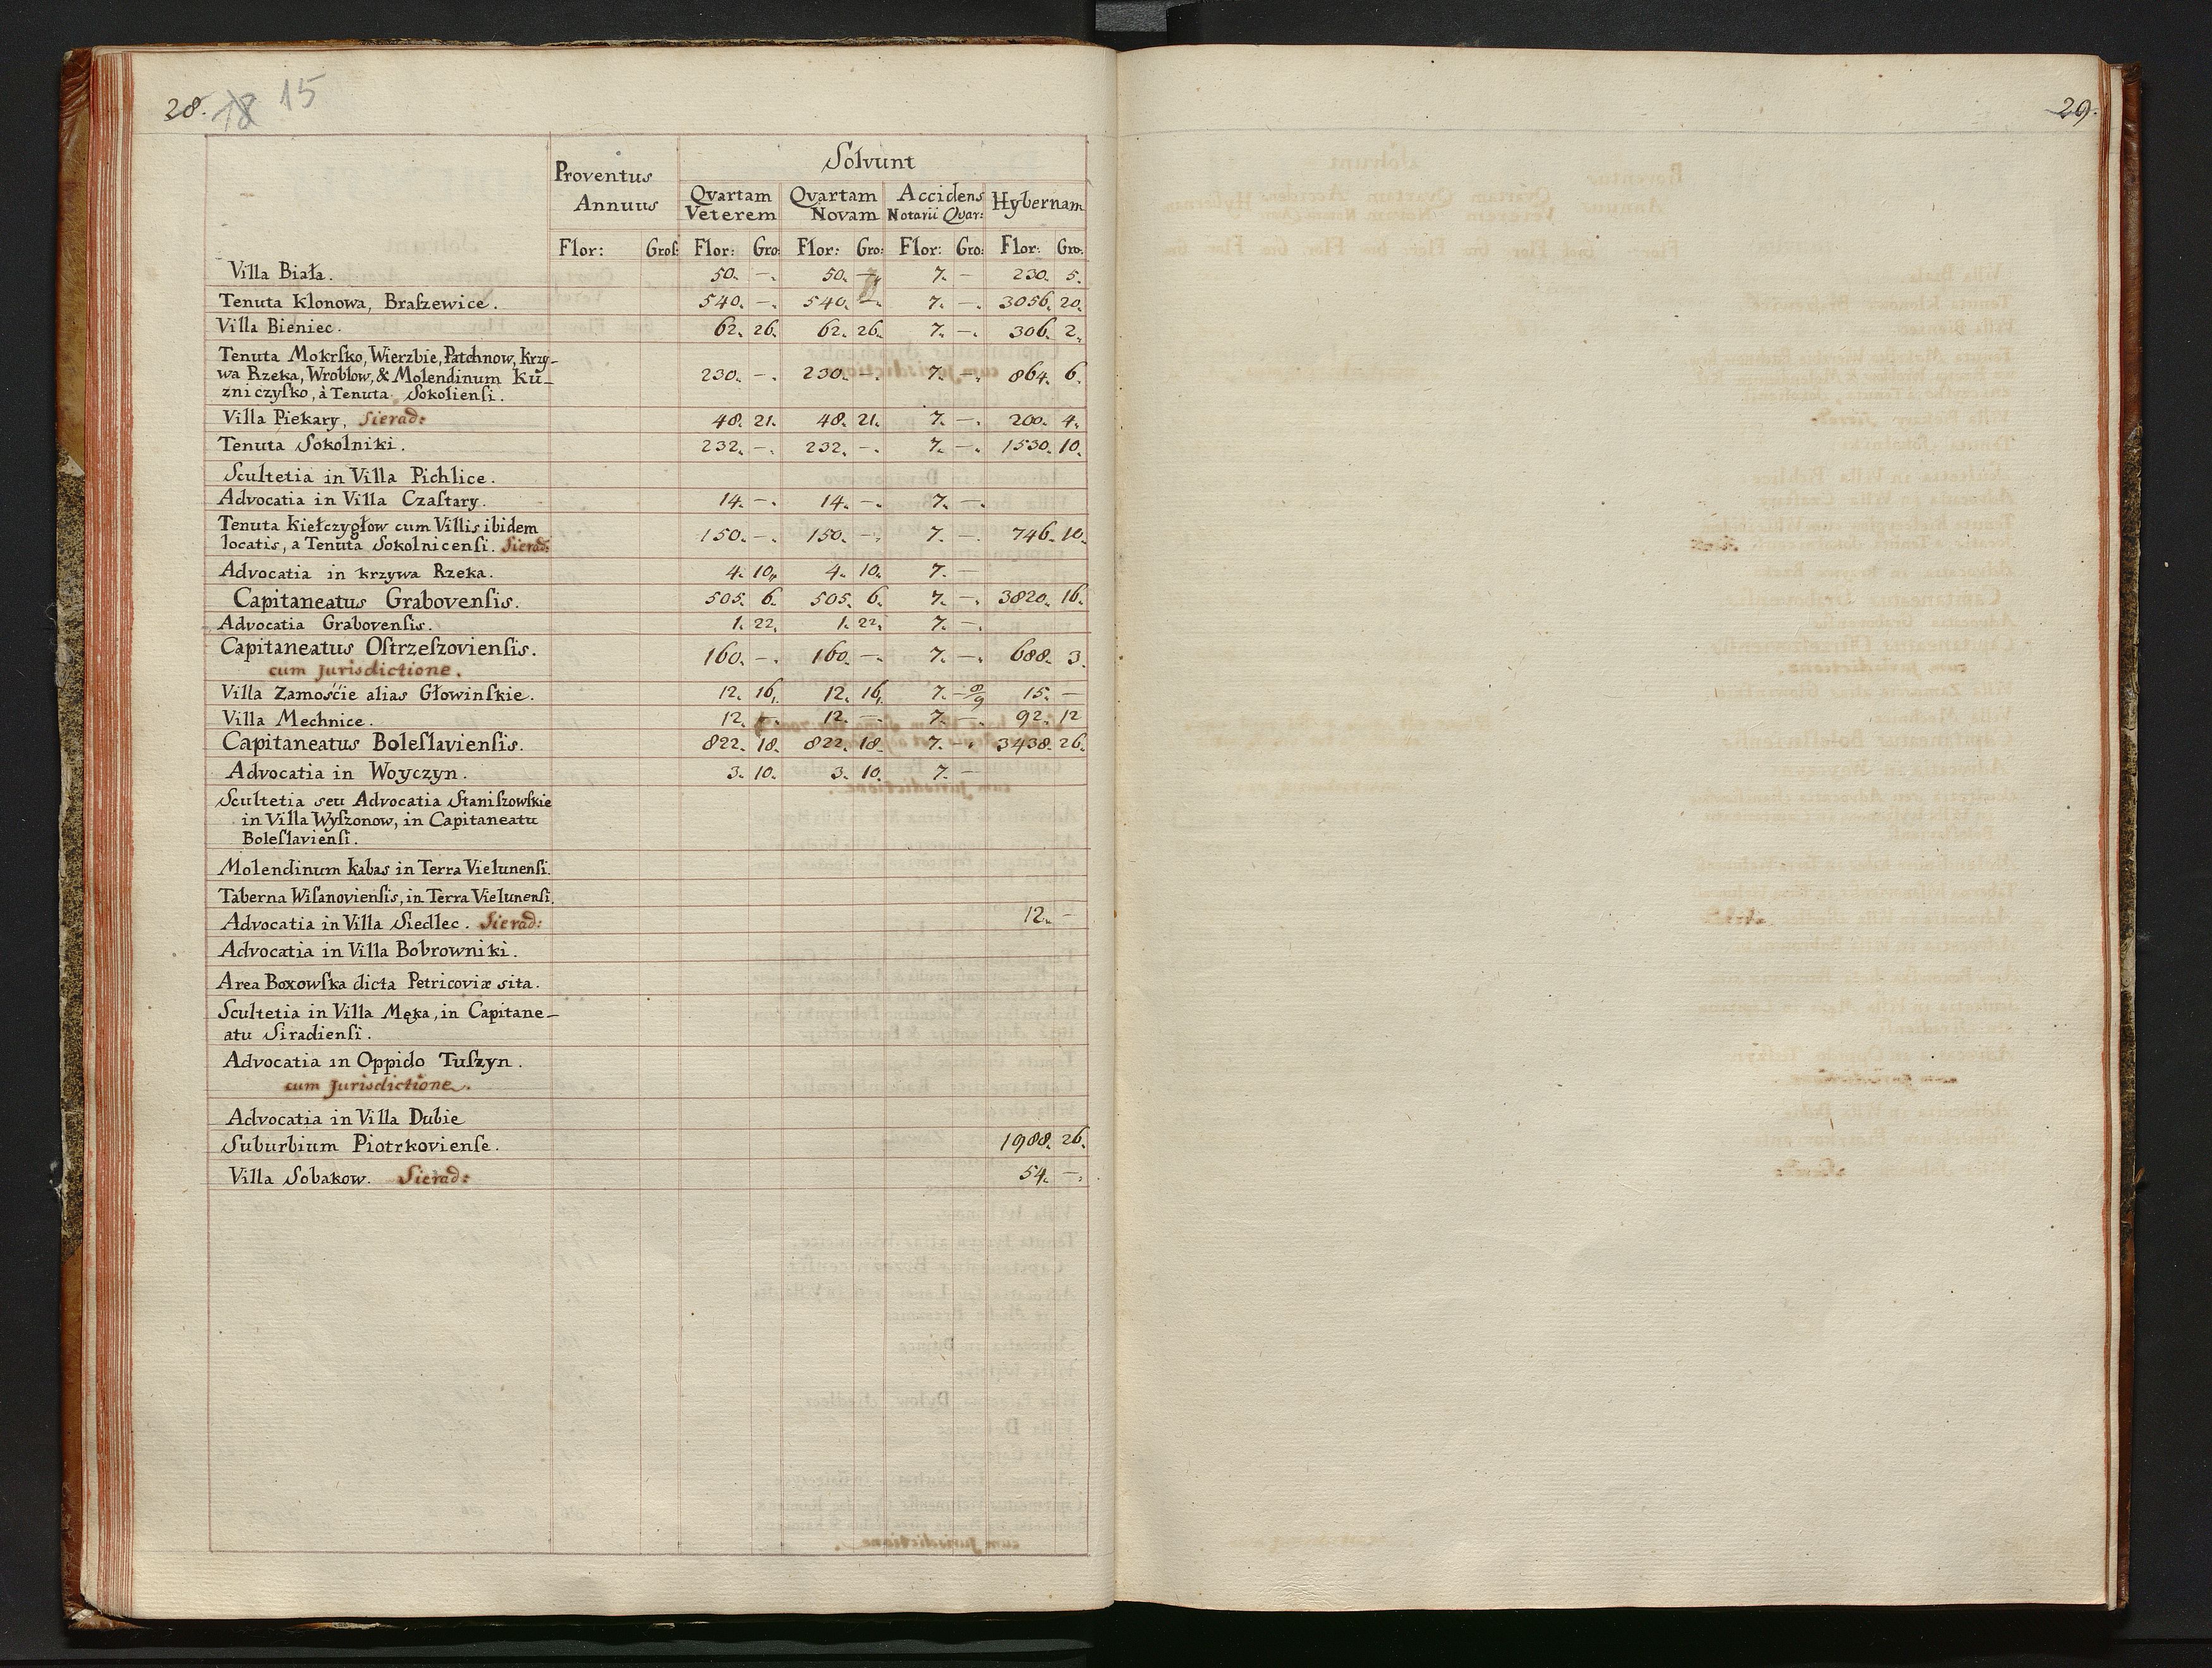 28. 18 15
29.
Proventus Annuus
Solvunt
Qvartam Veterem
Qvartam Novam
Accidens Notarii Qvar:
Hybernam
Flor: Groſ: Flor: Gro: Flor: Gro: Flor: Gro: Flor: Gro:
Villa Biała. 50. –. 50. – 7. – 230. 5.
Tenuta Klonowa, Braſzewice. 540. –. 540. –. 7. –. 3056. 20.
Villa Bieniec. 62. 26. 62. 26. 7. –. 306. 2.
Tenuta Mokrſko, Wierzbie, Patchnow, Krzy-
wa Rzeka, Wroblow, & Molendinum Ku- 230. –. 230. –. 7. –. 864. 6.
zniczyſko, à Tenuta Sokolienſi.
Villa Piekary, Sierad: 48. 21. 48. 21. 7. –. 200. 4.
Tenuta Sokolniki. 232. –. 232. –. 7. –. 1530. 10.
Scultetia in Villa Pichlice.
Advocatia in Villa Czaſtary. 14. –. 14. –. 7. –.
Tenuta Kiełczygłow cum Villis ibidem
locatis, a Tenuta Sokolnicenſi. Sierad: 150. –. 150. –. 7. –. 746. 10.
Advocatia in krzywa Rzeka. 4. 10. 4. 10. 7. –
Capitaneatus Grabovenſis. 505. 6. 505. 6. 7. –. 3820. 16.
Advocatia Grabovenſis. 1. 22. 1. 22. 7. –.
Capitaneatus Oſtrzeſzovienſis. 160. –. 160. –. 7. –. 688. 3.
cum Jurisdictione.
Villa Zamośćie alias Głowinſkie. 12. 16. 12. 16. 7. – 8/9 15. –
Villa Mechnice. 12. –. 12. –. 7. –. 92. 12
Capitaneatus Boleſlavienſis. 822. 18. 822. 18. 7. –. 3438. 26.
Advocatia in Woyczyn. 3. 10. 3. 10. 7. –
Scultetia seu Advocatia Staniſzowſkie
in Villa Wyſzonow, in Capitaneatu
Boleſlavienſi.
Molendinum Kabas in Terra Vielunenſi.
Taberna Wiſanovienſis, in Terra Vielunenſi.
Advocatia in Villa Siedlec. Sierad: 12. –
Advocatia in Villa Bobrowniki.
Area Boxowſka dicta Petricoviæ sita.
Scultetia in Villa Męka, in Capitane-
atu Siradienſi.
Advocatia in Oppido Tuſzyn.
cum Jurisdictione.
Advocatia in Villa Dubie
Suburbium Piotrkovienſe. 1988. 26.
Villa Sobakow. Sierad: 54. –.